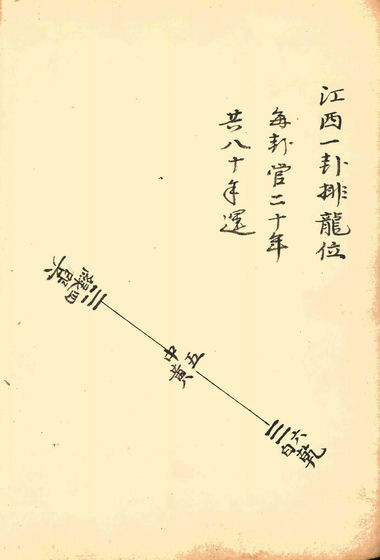 江西一卦排龍位
每卦管二十年
共八十年運
四綠
巽
中
五
黃
六
白
乾